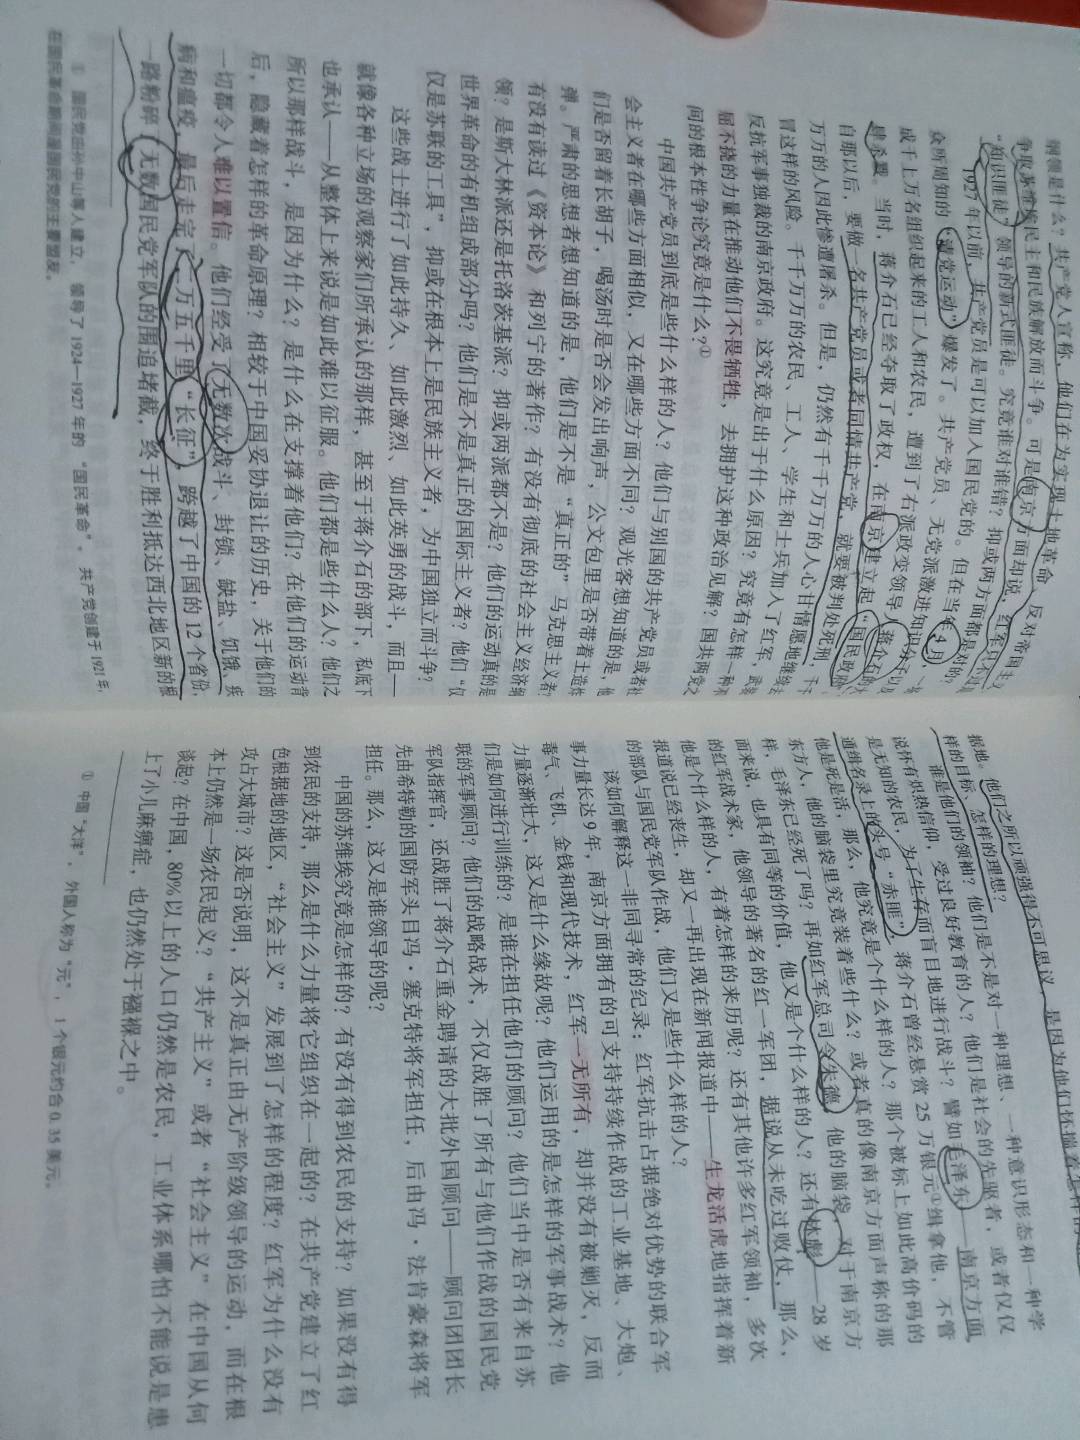 纲领是什么？共产党人宣称，他们在为实现土地革命、反对帝国主
争取苏维埃民主和民族解放而斗争。可是南京方面却说，红军只不
“知识匪徒”领导的新式匪徒。究竟谁对谁错？抑或两方面都是对的？
1927年以前，共产党员是可以加入国民党的。但在当年4月
众所周知的“清党运动”爆发了。共产党员、无党派激进知识分子
成千上万名组织起来的工人和农民，遭到了右派政变领导人蒋介石的
肆杀戮。当时，蒋介石已经夺取了政权，在南京建立起“国民政府”
自那以后，要做一名共产党员或者同情共产党，就要被判处死刑，
万万的人因此惨遭屠杀。但是，仍然有千千万万的人心甘情愿地继续
冒这样的风险。千千万万的农民、工人、学生和士兵加入了红军，武装
反抗军事独裁的南京政府。这究竟是出于什么原因？究竟有怎样一种
屈不挠的力量在推动他们不畏牺牲，去拥护这种政治见解？国共两党之
间的根本性争论究竟是什么？①
中国共产党员到底是些什么样的人？他们与别国的共产党员或者社
会主义者在哪些方面相似，又在哪些方面不同？观光客想知道的是，他
们是否留着长胡子，喝汤时是否会发出响声，公文包里是否带着土造炸
弹。严肃的思想者想知道的是，他们是不是“真正的”马克思主义者？
有没有读过《资本论》和列宁的著作？有没有彻底的社会主义经济纲
领？是斯大林派还是托洛茨基派？抑或两派都不是？他们的运动真的是
世界革命的有机组成部分吗？他们是不是真正的国际主义者？他们“仅
仅是苏联的工具”，抑或在根本上是民族主义者，为中国独立而斗争？
这些战士进行了如此持久、如此激烈、如此英勇的战斗，而且——
就像各种立场的观察家们所承认的那样，甚至于蒋介石的部下，私底下
也承认——从整体上来说是如此难以征服。他们都是些什么人？他们之
所以那样战斗，是因为什么？是什么在支撑着他们？在他们的运动背
后，隐藏着怎样的革命原理？相较于中国妥协退让的历史，关于他们的
一切都令人难以置信。他们经受了无数次战斗、封锁、缺盐、饥饿、疾
病和瘟疫，最后走完了二万五千里“长征”，跨越了中国的12个省份，
一路粉碎了无数国民党军队的围追堵截，终于胜利抵达西北地区新的根
① 国民党由孙中山等人建立，领导了1924—1927年的“国民革命”，共产党创建于1921年，
在国民革命期间是国民党的主要盟友。
据地。他们之所以顽强得不可思议，是因为他们怀揣着怎样的
样的目标、怎样的理想？
谁是他们的领袖？他们是不是对一种理想、一种意识形态和一种学
说怀有炽热信仰，受过良好教育的人？他们是社会的先驱者，或者仅仅
是无知的农民，为了生存而盲目地进行战斗？譬如毛泽东——南京方面
通缉名单上的头号“赤匪”，蒋介石曾经悬赏25万银元①缉拿他，不管
他是死是活，那么，他究竟是个什么样的人？那个被标上如此高价码的
东方人，他的脑袋里究竟装着些什么？或者真的像南京方面声称的那
样，毛泽东已经死了吗？再如红军总司令朱德，他的脑袋，对于南京方
面来说，也具有同等的价值，他又是个什么样的人？还有林彪——28岁
的红军战术家，他领导的著名的红一军团，据说从未吃过败仗，那么，
他是个什么样的人，有着怎样的来历呢？还有其他许多红军领袖，多次
报道说已经丧生，却又一再出现在新闻报道中——生龙活虎地指挥着新
的部队与国民党军队作战，他们又是些什么样的人？
该如何解释这一非同寻常的纪录：红军抗击占据绝对优势的联合军
事力量长达9年，南京方面拥有的可支持持续作战的工业基地、大炮、
毒气、飞机、金钱和现代技术，红军一无所有，却并没有被剿灭，反而
力量逐渐壮大，这又是什么缘故呢？他们运用的是怎样的军事战术？他
们是如何进行训练的？是谁在担任他们的顾问？他们当中是否有来自苏
联的军事顾问？他们的战略战术，不仅战胜了所有与他们作战的国民党
军队指挥官，还战胜了蒋介石重金聘请的大批外国顾问——顾问团团长
先由希特勒的国防军头目冯·塞克特将军担任，后由冯·法肯豪森将军
担任。那么，这又是谁领导的呢？
中国的苏维埃究竟是怎样的？有没有得到农民的支持？如果没有得
到农民的支持，那么是什么力量将它组织在一起的？在共产党建立了红
色根据地的地区，“社会主义”发展到了怎样的程度？红军为什么没有
攻占大城市？这是否说明，这不是真正由无产阶级领导的运动，而在根
本上仍然是一场农民起义？“共产主义”或者“社会主义”在中国从何
谈起？在中国，80%以上的人口仍然是农民，工业体系哪怕不能说是患
上了小儿麻痹症，也仍然处于襁褓之中。
① 中国“大洋”，外国人称为“元”，1个银元约合0.35美元。